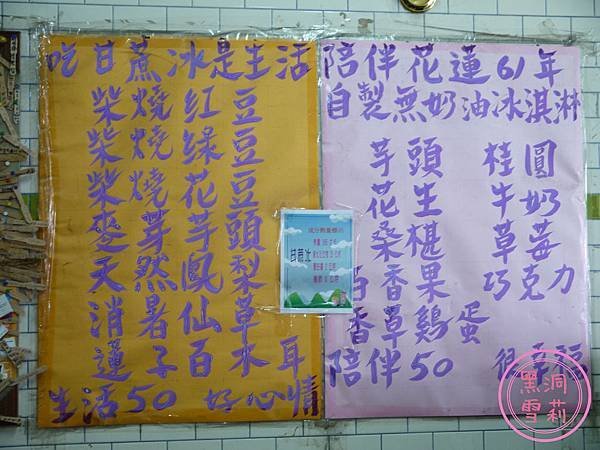 吃甘蔗冰是生活
柴燒紅豆
柴燒綠豆
柴燒花豆
麥芽芋頭
天然鳳梨
消暑仙草
蓮子百木耳
生活50 好心情
甘蔗冰
陪伴花蓮61年
自製無奶油冰淇淋
芋頭 桂圓
花生 牛奶
桑椹 草莓
百香果 巧克力
香草雞蛋
陪伴50 很幸福
黑洞
雪莉